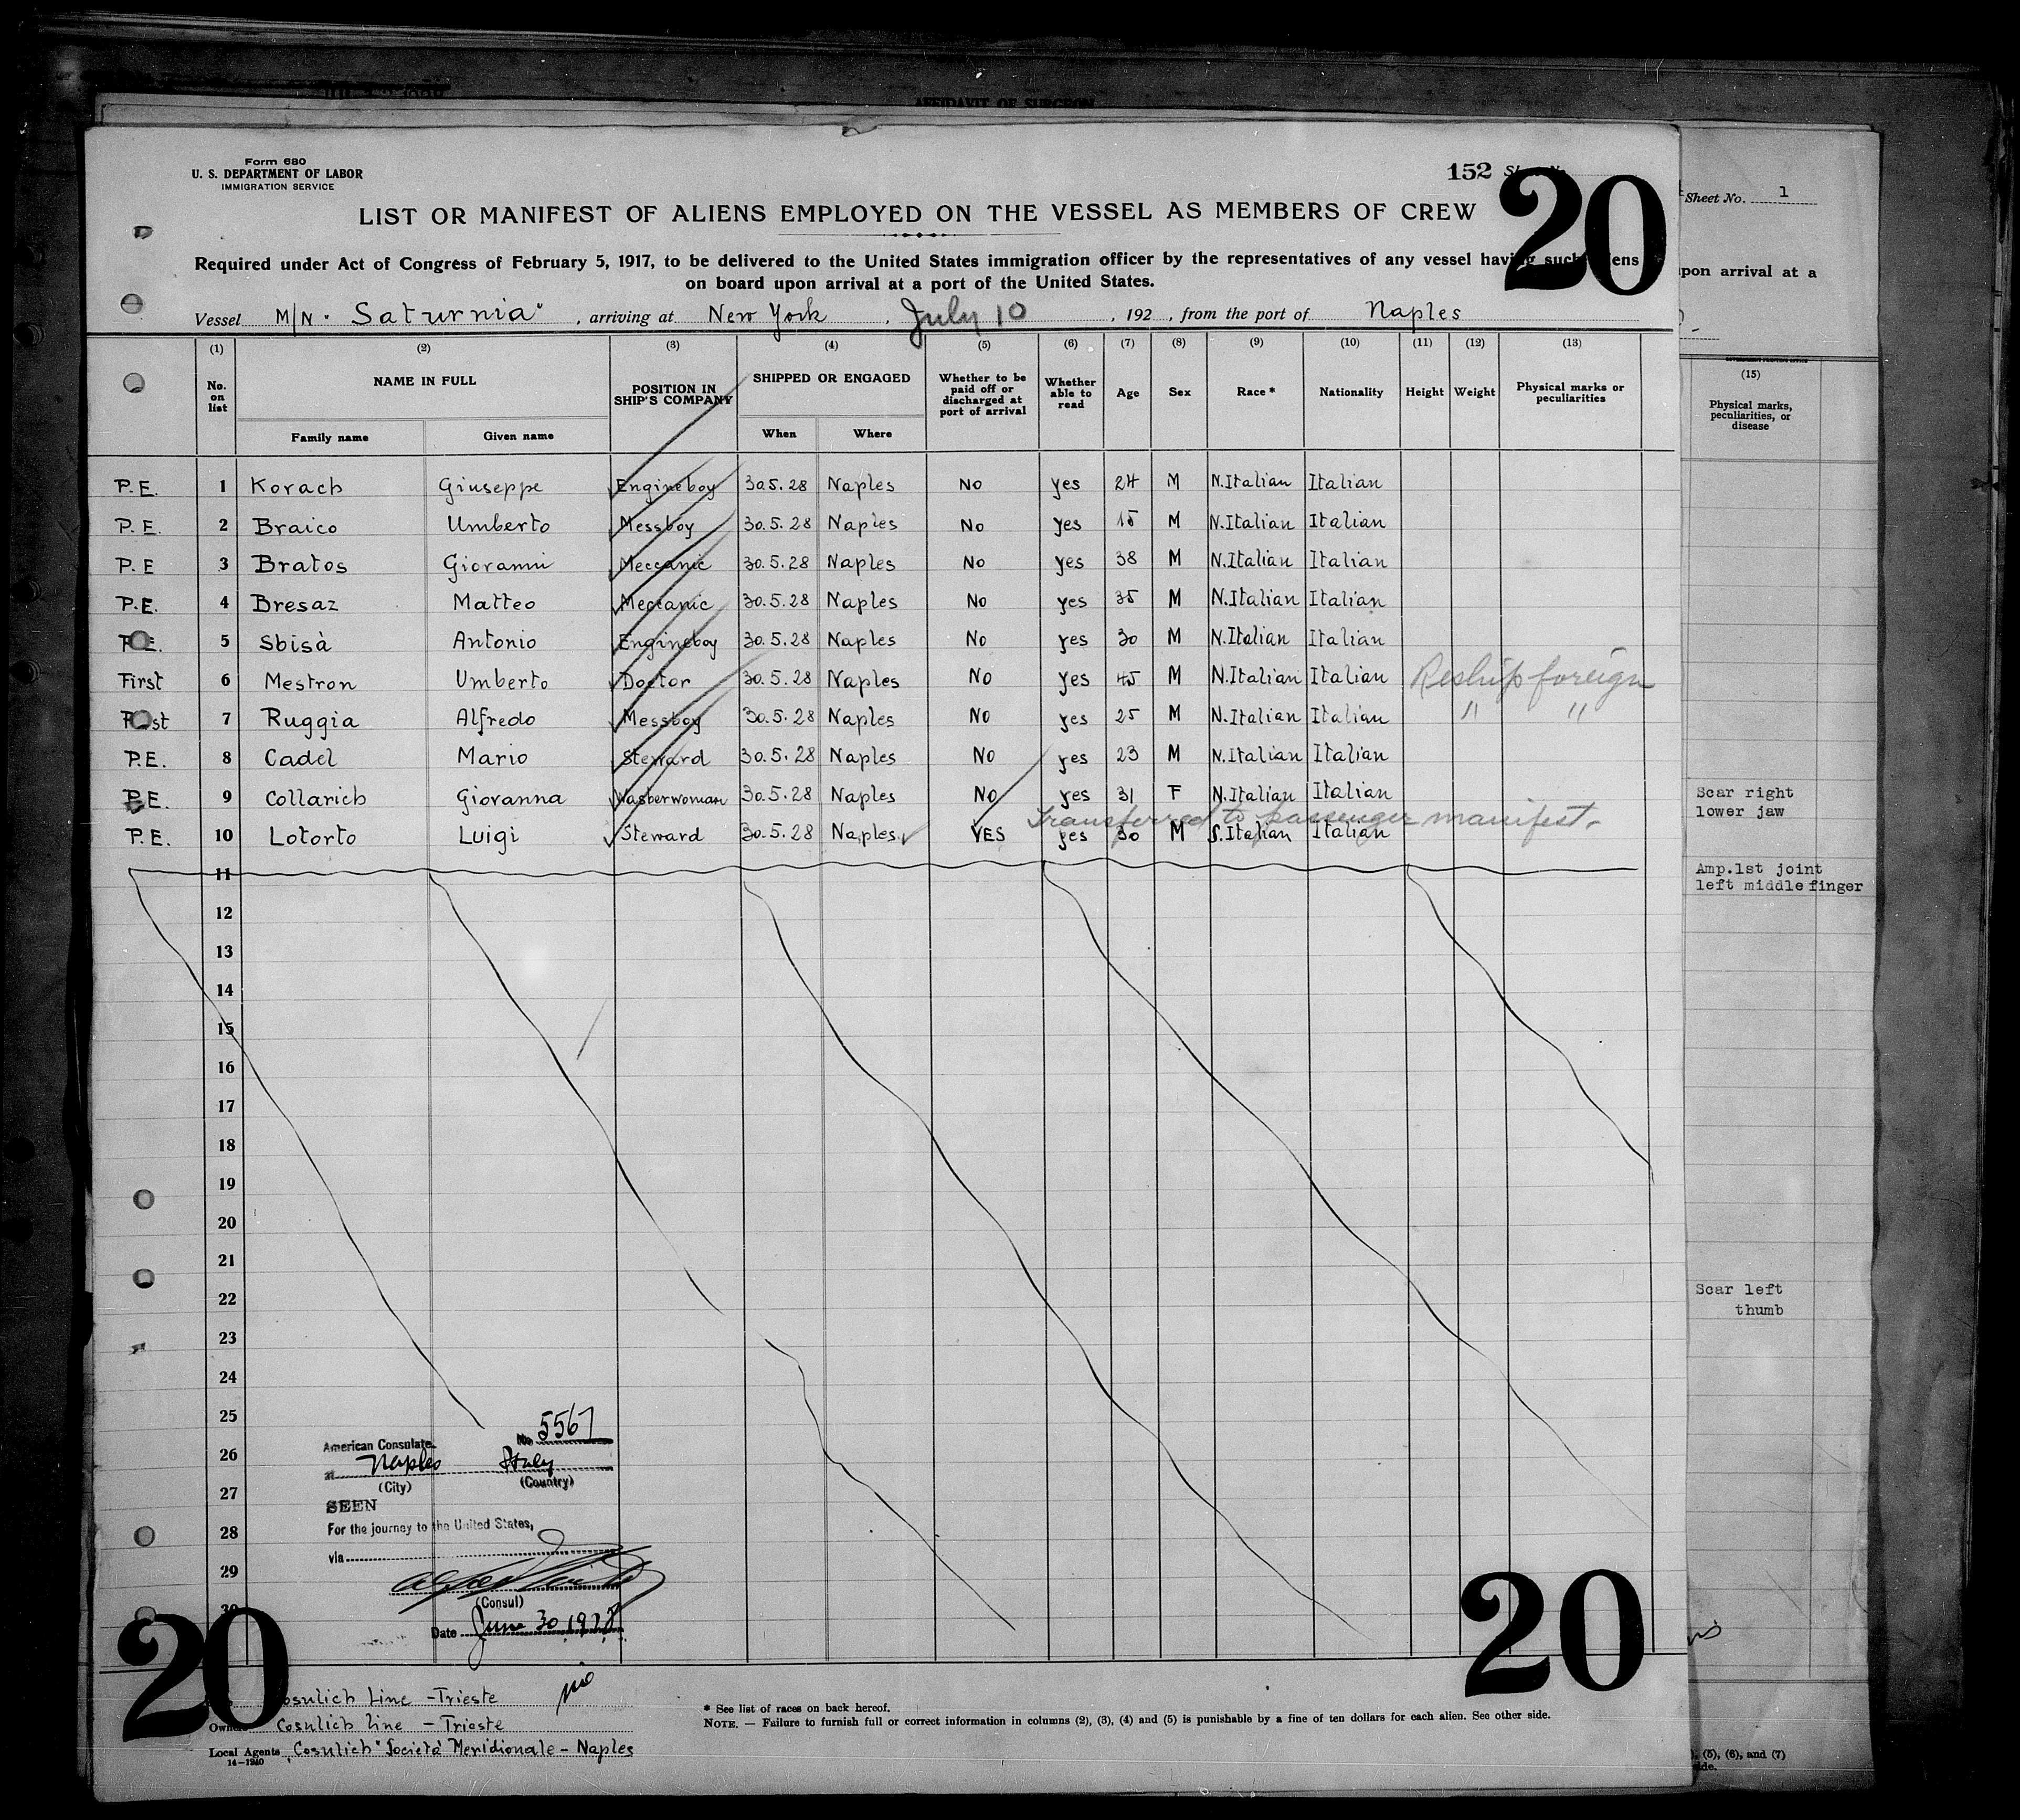 AFFIDAVIT OF SURGEON
Form 680
U. S. DEPARTMENT OF LABOR
IMMIGRATION SERVICE
152 Sheet No.
20
LIST OR MANIFEST OF ALIENS EMPLOYED ON THE VESSEL AS MEMBERS OF CREW
Required under Act of Congress of February 5, 1917, to be delivered to the United States immigration officer by the representatives of any vessel having such aliens
on board upon arrival at a port of the United States.
Vessel M/N "Saturnia", arriving at New York, July 10, 192 , from the port of Naples
(1) (2) (3) (4) (5) (6) (7) (8) (9) (10) (11) (12) (13)
No. on list NAME IN FULL POSITION IN SHIP'S COMPANY SHIPPED OR ENGAGED Whether to be paid off or discharged at port of arrival Whether able to read Age Sex Race * Nationality Height Weight Physical marks or peculiarities
Family name Given name When Where
P.E. 1 Korach Giuseppe Engineboy 30.5.28 Naples No yes 24 M N.Italian Italian
P.E. 2 Braico Umberto Messboy 30.5.28 Naples No yes 15 M N.Italian Italian
P.E 3 Bratos Giovanni Meccanic 30.5.28 Naples No yes 38 M N.Italian Italian
P.E. 4 Bresaz Matteo Meccanic 30.5.28 Naples No yes 35 M N.Italian Italian
P.E. 5 Sbisà Antonio Engineboy 30.5.28 Naples No yes 30 M N.Italian Italian
First 6 Mestron Umberto Doctor 30.5.28 Naples No yes 45 M N.Italian Italian Reship foreign
First 7 Ruggia Alfredo Messboy 30.5.28 Naples No yes 25 M N.Italian Italian " "
P.E. 8 Cadel Mario Steward 30.5.28 Naples No yes 23 M N.Italian Italian
P.E. 9 Collarich Giovanna Washerwoman 30.5.28 Naples No yes 31 F N.Italian Italian
Transferred to passenger manifest.
P.E. 10 Lotorto Luigi Steward 30.5.28 Naples YES yes 30 M S.Italian Italian
11
12
13
14
15
16
17
18
19
20
21
22
23
24
25
26
27
28
29
30
No 5567
American Consulate
at Naples Italy
(City) (Country)
SEEN
For the journey to the United States,
via
(Consul)
Date June 30 1928
20
20
Cosulich Line - Trieste
Owners Cosulich Line - Trieste
Local Agents "Cosulich" Società Meridionale - Naples
14-1240
* See list of races on back hereof.
NOTE. — Failure to furnish full or correct information in columns (2), (3), (4) and (5) is punishable by a fine of ten dollars for each alien. See other side.
Sheet No. 1
upon arrival at a
(15)
Physical marks, peculiarities, or disease
Scar right
lower jaw
Amp.1st joint
left middle finger
Scar left
thumb
(5), (6), and (7)
side.